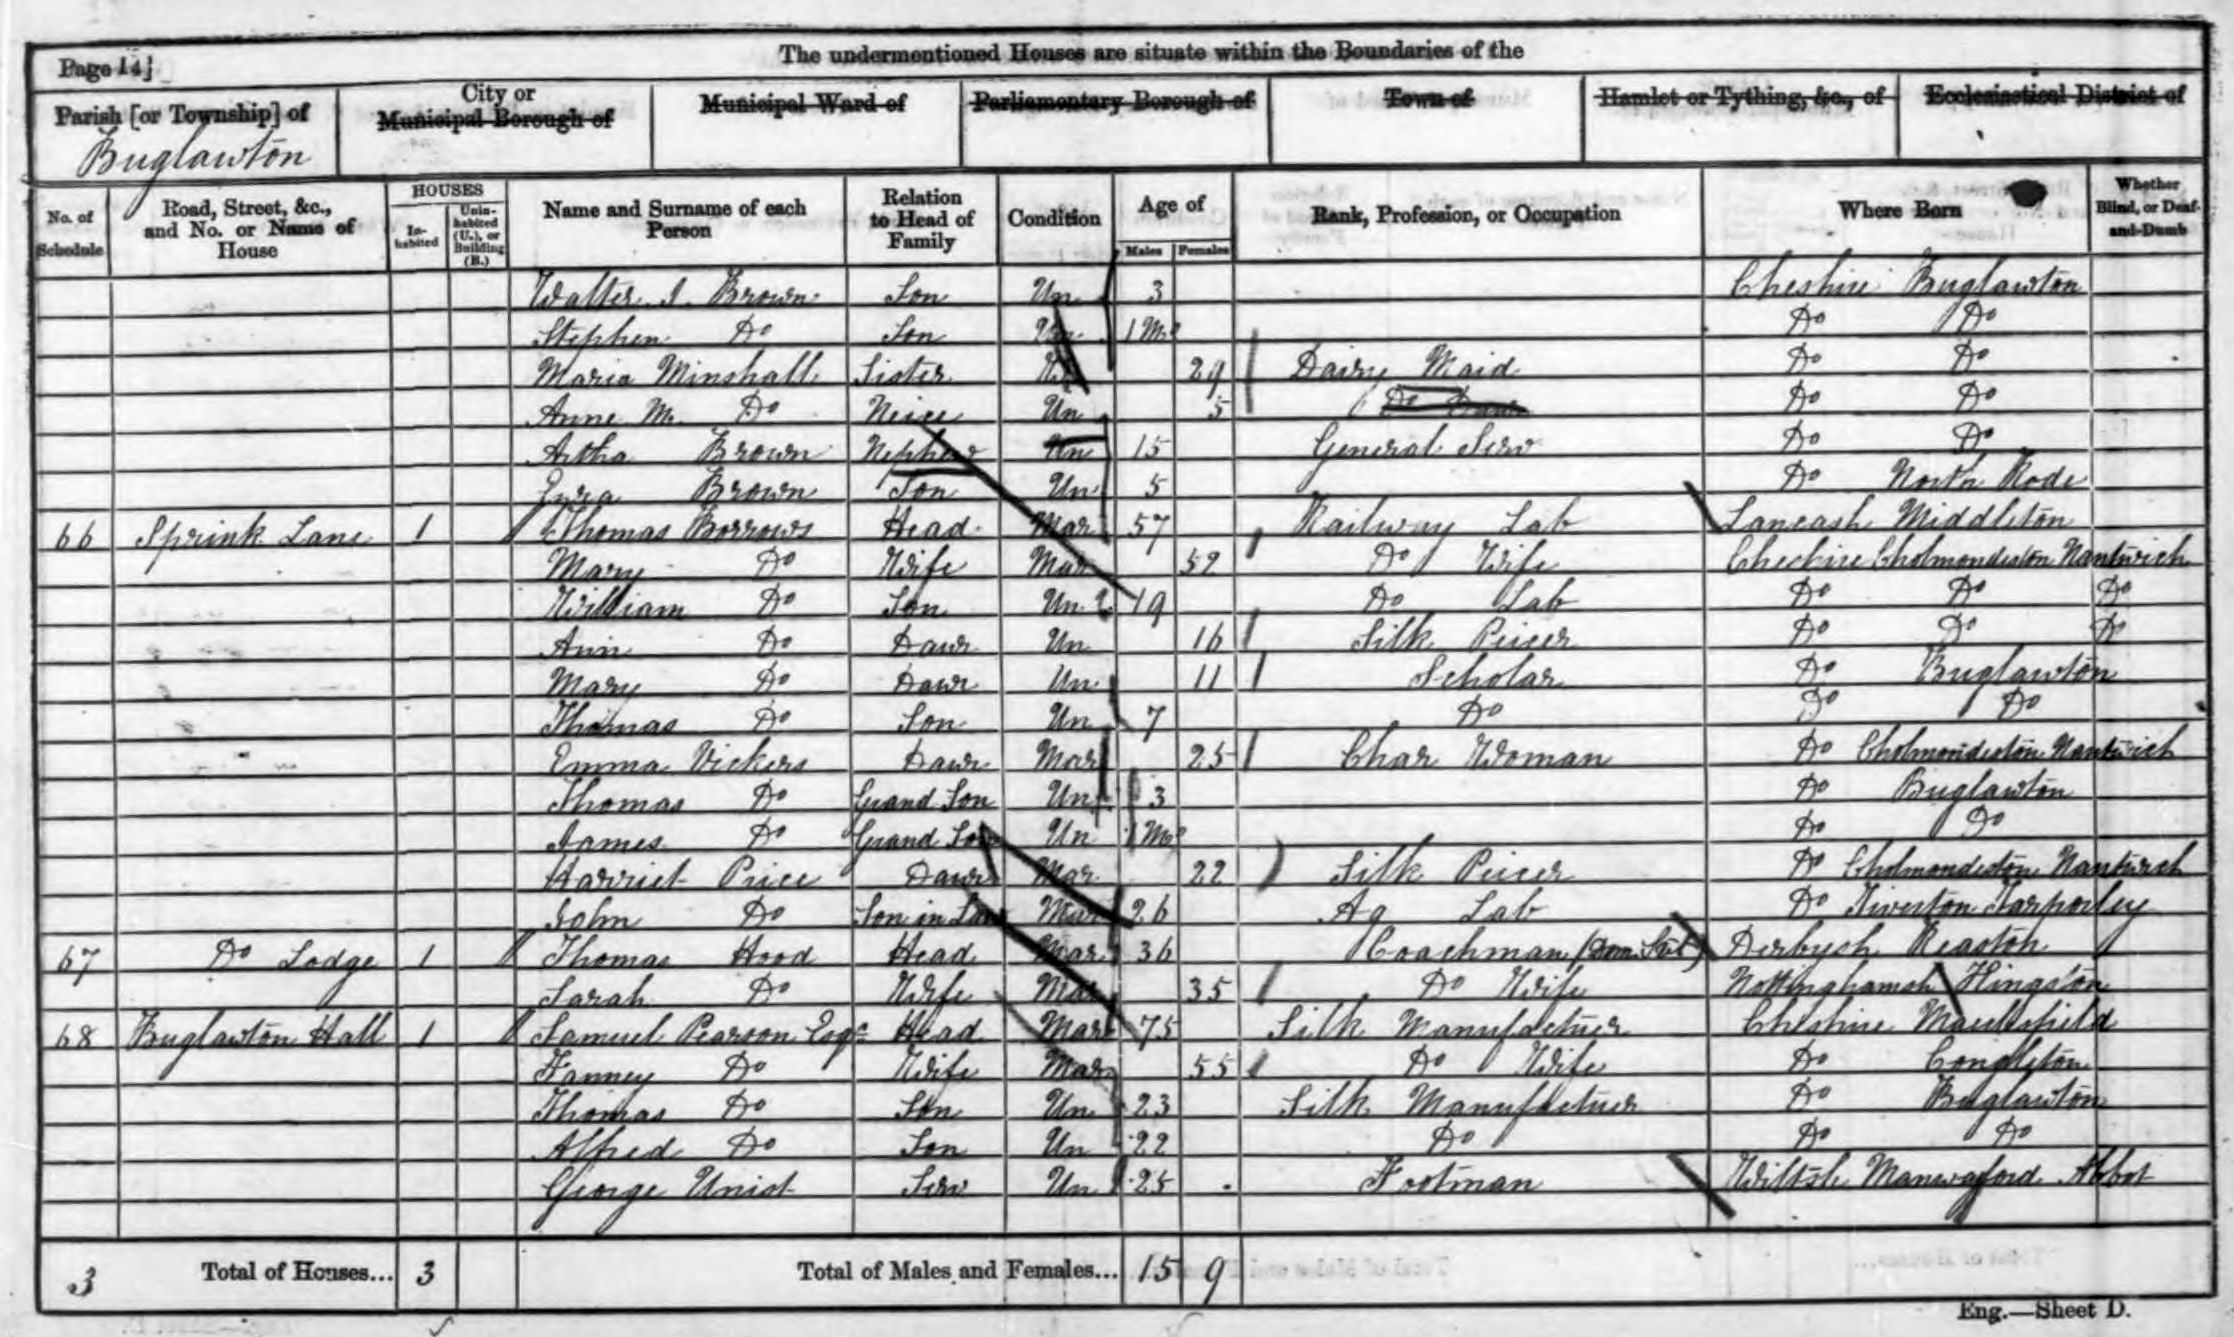 The undermentioned Houses are situate within the Boundaries of the
Page 14]
Parish [or Township] of
Buglawton
City or
Municipal Borough of
Municipal Ward of
Parliamentary Borough of
Town of
Hamlet or Tything, &c., of
Ecclesiastical District of
No. of Schedule
Road, Street, &c., and No. or Name of House
HOUSES
In-habited
Unin-habited (U.), or Building (B.)
Name and Surname of each Person
Relation to Head of Family
Condition
Age of
Males Females
Rank, Profession, or Occupation
Where Born
Whether Blind, or Deaf-and-Dumb
Walter J. Brown Son Un 3 Cheshire Buglawton
Stephen Do Son Un 1 Mo Do Do
Maria Minshall Sister 29 Dairy Maid Do Do
Anne M. Do Neice Un 5 Do Do
Brown Nephew Un 15 General Serv Do Do
Ezra Brown Son Un 5 Do North Rode
66 Sprink Lane 1 Thomas Borrows Head Mar 57 Railway Lab Lancash Middleton
Mary Do Wife Mar 52 Do Wife Cheshire Cholmondeston Nantwich
William Do Son Un 19 Do Lab Do Do Do
Ann Do Dawr Un 16 Silk Piicer Do Do Do
Mary Do Dawr Un 11 Scholar Do Buglawton
Thomas Do Son Un 7 Do Do Do
Emma Vickers Dawr Mar 25 Char Woman Do Cholmondeston Nantwich
Thomas Do Grand Son Un 3 Do Buglawton
James Do Grand Son Un 1 Mo Do Do
Harriet Price Dawr Mar 22 Silk Piicer Do Cholmondeston Nantwich
John Do Son in Law Mar 26 Ag Lab Do Tiverton Tarporley
67 Do Lodge 1 Thomas Hood Head Mar 36 Coachman (Dom Serv) Derbysh Reaston
Sarah Do Wife Mar 35 Do Wife Nottinghamsh Hingston
68 Buglawton Hall 1 Samuel Pearson Esqr Head Mar 75 Silk Manufactuer Cheshire Maclesfield
Fanney Do Wife Mar 55 Do Wife Do Congleton
Thomas Do Son Un 23 Silk Manufactuer Do Buglawton
Alfred Do Son Un 22 Do Do Do
George Serv Un 25 Footman Wiltsh Abbot
3 Total of Houses... 3 Total of Males and Females... 15 9
Eng.—Sheet D.